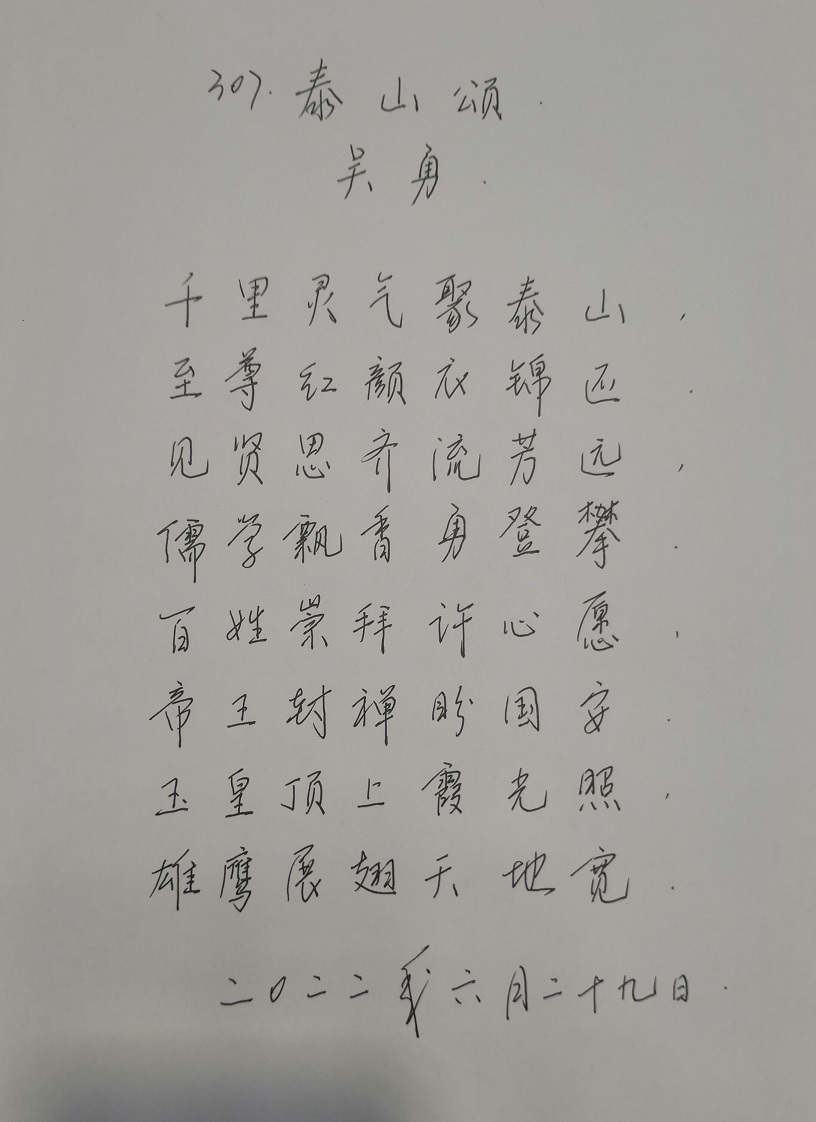 307. 泰山颂.
吴勇.
千里灵气聚泰山，
至尊红颜衣锦还.
见贤思齐流芳远，
儒学飘香勇登攀.
百姓崇拜许心愿，
帝王封禅盼国安.
玉皇顶上霞光照，
雄鹰展翅天地宽.
二〇二二年六月二十九日.